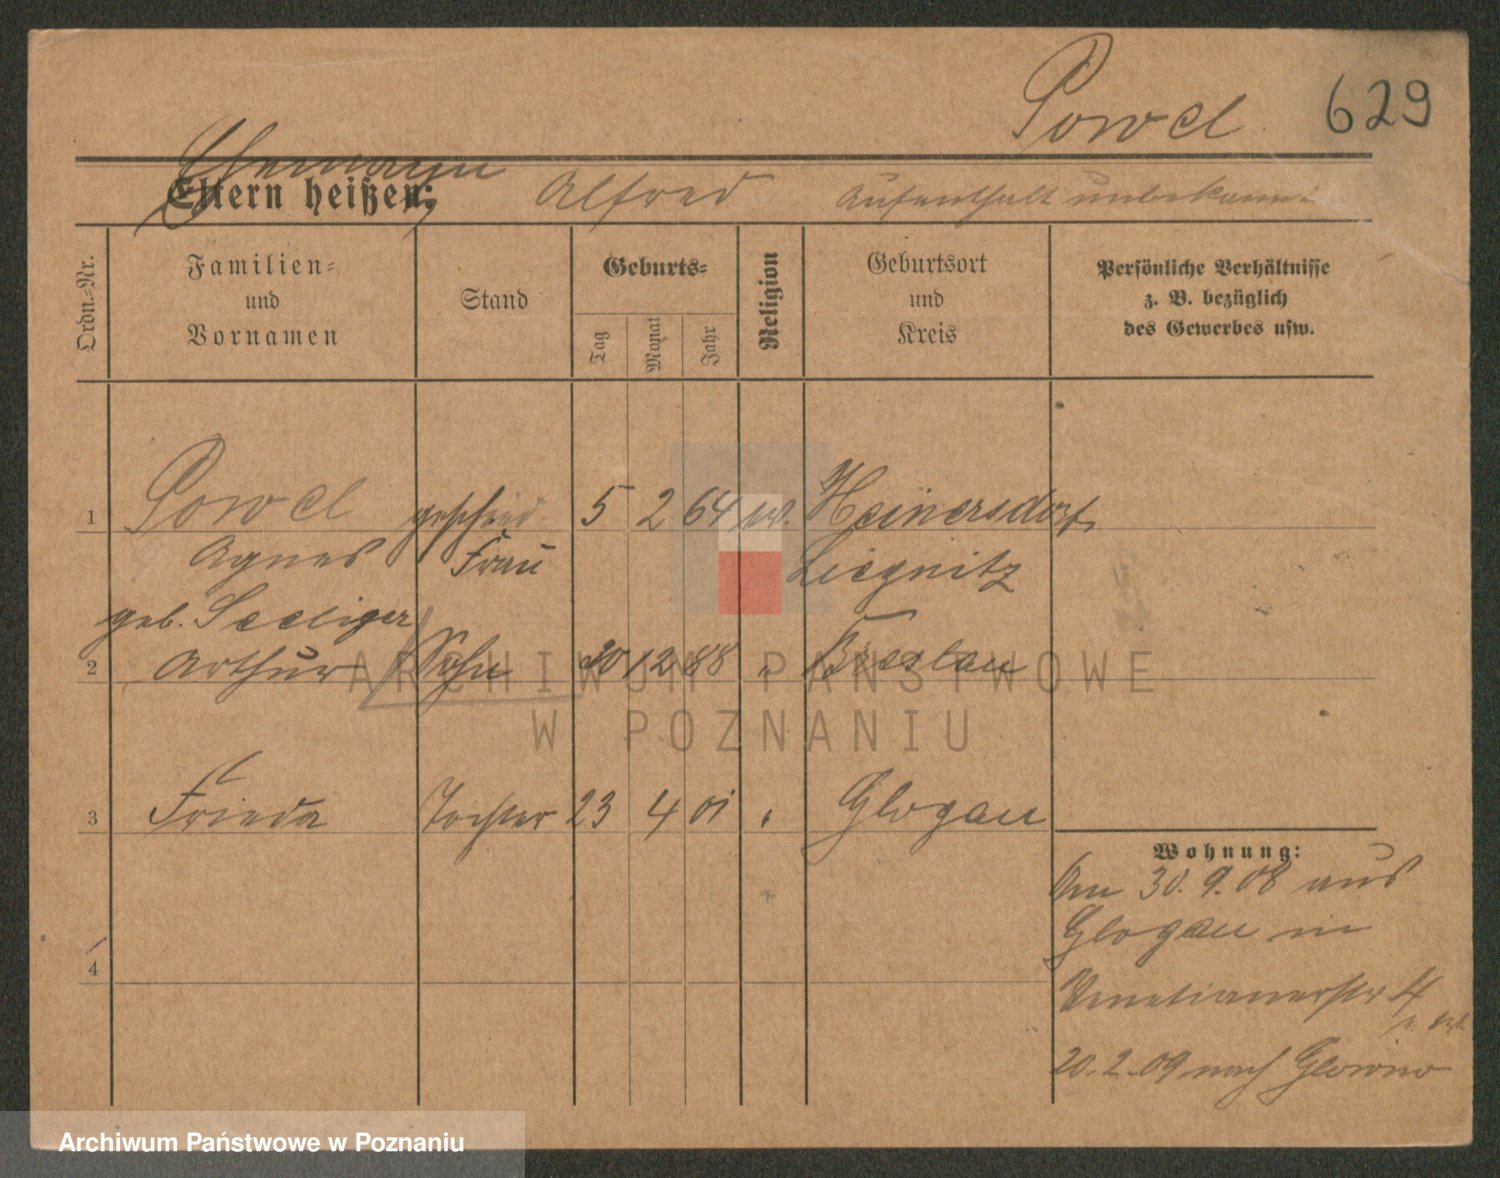 Powel
629
Ehemann
Eltern heißen:
Alfred Aufenthalt unbekannt
Ordn.-Nr.
Familien-
und
Vornamen
Stand
Geburts-
Tag
Monat
Jahr
Religion
Geburtsort
und
Kreis
Persönliche Verhältnisse
z. B. bezüglich
des Gewerbes usw.
1 Powel geschied. 5 2 64 Heinersdorf
Agnes Frau Liegnitz
geb. Seeliger
2 Arthur Sohn 30 12 88 " Breslau
3 Frieda Tochter 23 4 01 " Glogau
4
Wohnung:
Am 30.9.08 aus
Glogau in
Venetianerstr 4
20.2.09 nach Glowno
ARCHIWUM PAŃSTWOWE
W POZNANIU
Archiwum Państwowe w Poznaniu